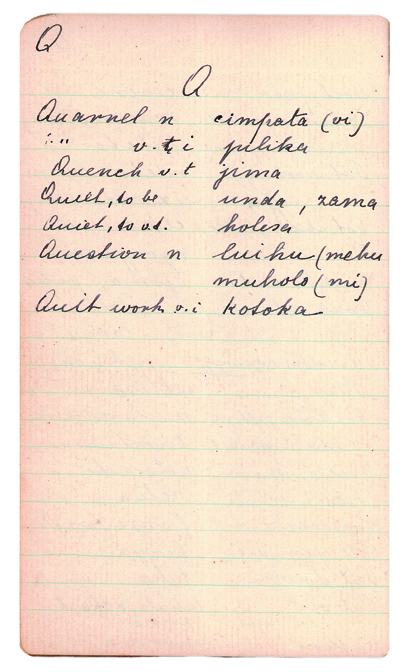 Q
Q
Quarrel n cimpata (vi)
" v.t i julika
Quench v.t jima
Quiet, to be unda, zama
Quiet, to v.t. holesa
Question n luihu (mehu
muholo (mi)
Quit work v.i kotoka